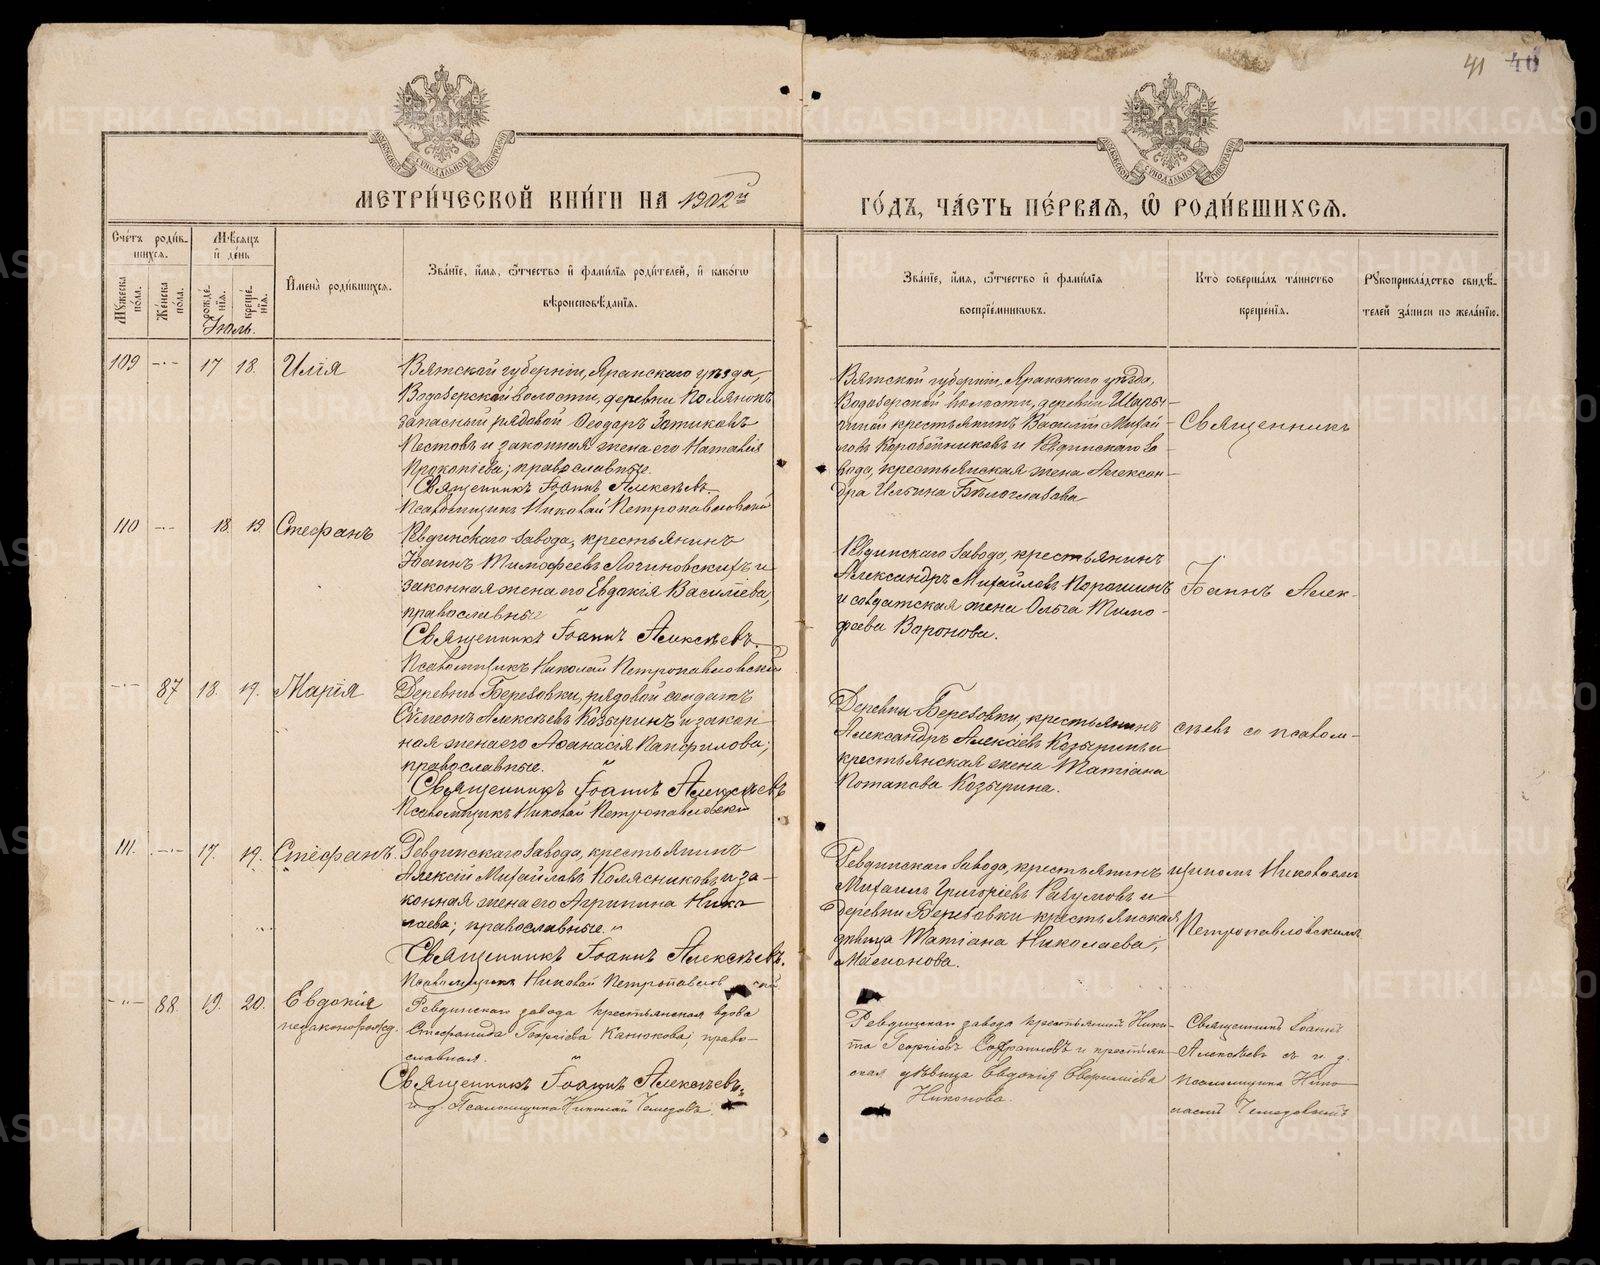 41 40
МЕТРИ́ЧЕСКОЙ КНИ́ГИ НА 1902й
ГО́ДЪ, ЧА́СТЬ ПЕ́РВАѦ, Ѽ РОДИ́ВШИХСѦ.
Сче́тъ роди́в-
шихсѧ.
Мꙋ́жеска по́ла.
Же́нска по́ла.
Мѣ́сѧцъ и де́нь
рожде́-нїѧ.
креще́-нїѧ.
Іюль.
И҆мена̀ роди́вшихсѧ.
Зва́нїе, и҆́мѧ, ѻ҆́тчество и҆ фами́лїѧ роди́телей, и҆ како́гѡ
вѣроисповѣ́данїѧ.
Зва́нїе, и҆́мѧ, ѻ҆́тчество и҆ фами́лїѧ
воспрїе́мникѡвъ.
Кто̀ соверша́лъ та́инство
креще́нїѧ.
Рꙋкоприкла́дство свидѣ́-
телей за́писи по жела́нїю.
109 -·- 17 18. Илія
Вятской губерніи, Яранскаго уѣзда,
Водозерской волости, деревни Полянокъ
запасный рядовой Ѳеодоръ Зотиковъ
Пестовъ и законная жена его Наталія
Прокопіева; православные.
Священникъ Іоаннъ Алексѣевъ.
Псаломщикъ Николай Петропавловскій
Вятской губерніи, Яранскаго уѣзда,
Водозерской волости, деревни Шары-
гиной крестьянинъ Василій Михай-
ловъ Коробейниковъ и Ревдинскаго за-
вода, крестьянская жена Алексан-
дра Ильина Бѣлоглазова
Священникъ
110 -·- 18. 19. Стефанъ
Ревдинскаго завода, крестьянинъ
Іоаннъ Тимофеевъ Логиновскихъ и
законная жена его Евдокія Василіева,
православные
Священникъ Іоаннъ Алексѣевъ.
Псаломщикъ Николай Петропавловскій
Ревдинскаго завода, крестьянинъ
Александръ Михайловъ Порошинъ
и солдатская жена Ольга Тимо-
феева Воронова.
Іоаннъ Алек-
-·- 87 18. 19. Марія
Деревни Березовки, рядовой солдатъ
Сѵмеонъ Алексѣевъ Козыринъ и закон-
ная жена его Аѳанасія Панфилова;
православные.
Священникъ Іоаннъ Алексѣевъ
Псаломщикъ Николай Петропавловскій
Деревни Березовки, крестьянинъ
Александръ Алексіевъ Козыринъ и
крестьянская жена Татіана
Потапова Козырина.
сѣевъ со псалом-
111. -·- 17. 19. Стефанъ.
Ревдинскаго завода, крестьянинъ
Алексій Михайловъ Колясниковъ и за-
конная жена его Агрипина Нико-
лаева; православные.
Священникъ Іоаннъ Алексѣевъ.
Псаломщикъ Николай Петропавловскій
Ревдинскаго завода, крестьянинъ
Михаилъ Григоріевъ Разумовъ и
деревни Березовки крестьянская
дѣвица Татіана Николаева
Мамонова.
щикомъ Николаемъ
Петропавловскимъ
-·- 88. 19. 20. Евдокія
незаконорожд.
Ревдинскаго завода крестьянская вдова
Стефанида Георгіева Канюкова право-
славная.
Священникъ Іоаннъ Алексѣевъ.
и. д. Псаломщика Николай Темедовъ
Ревдинскаго завода крестьянинъ Ники-
та Георгіевъ Софроновъ и крестьян-
ская дѣвица Евдокія
Никонова.
Священникъ Іоаннъ
Алексѣевъ съ и. д.
псаломщика Нико-